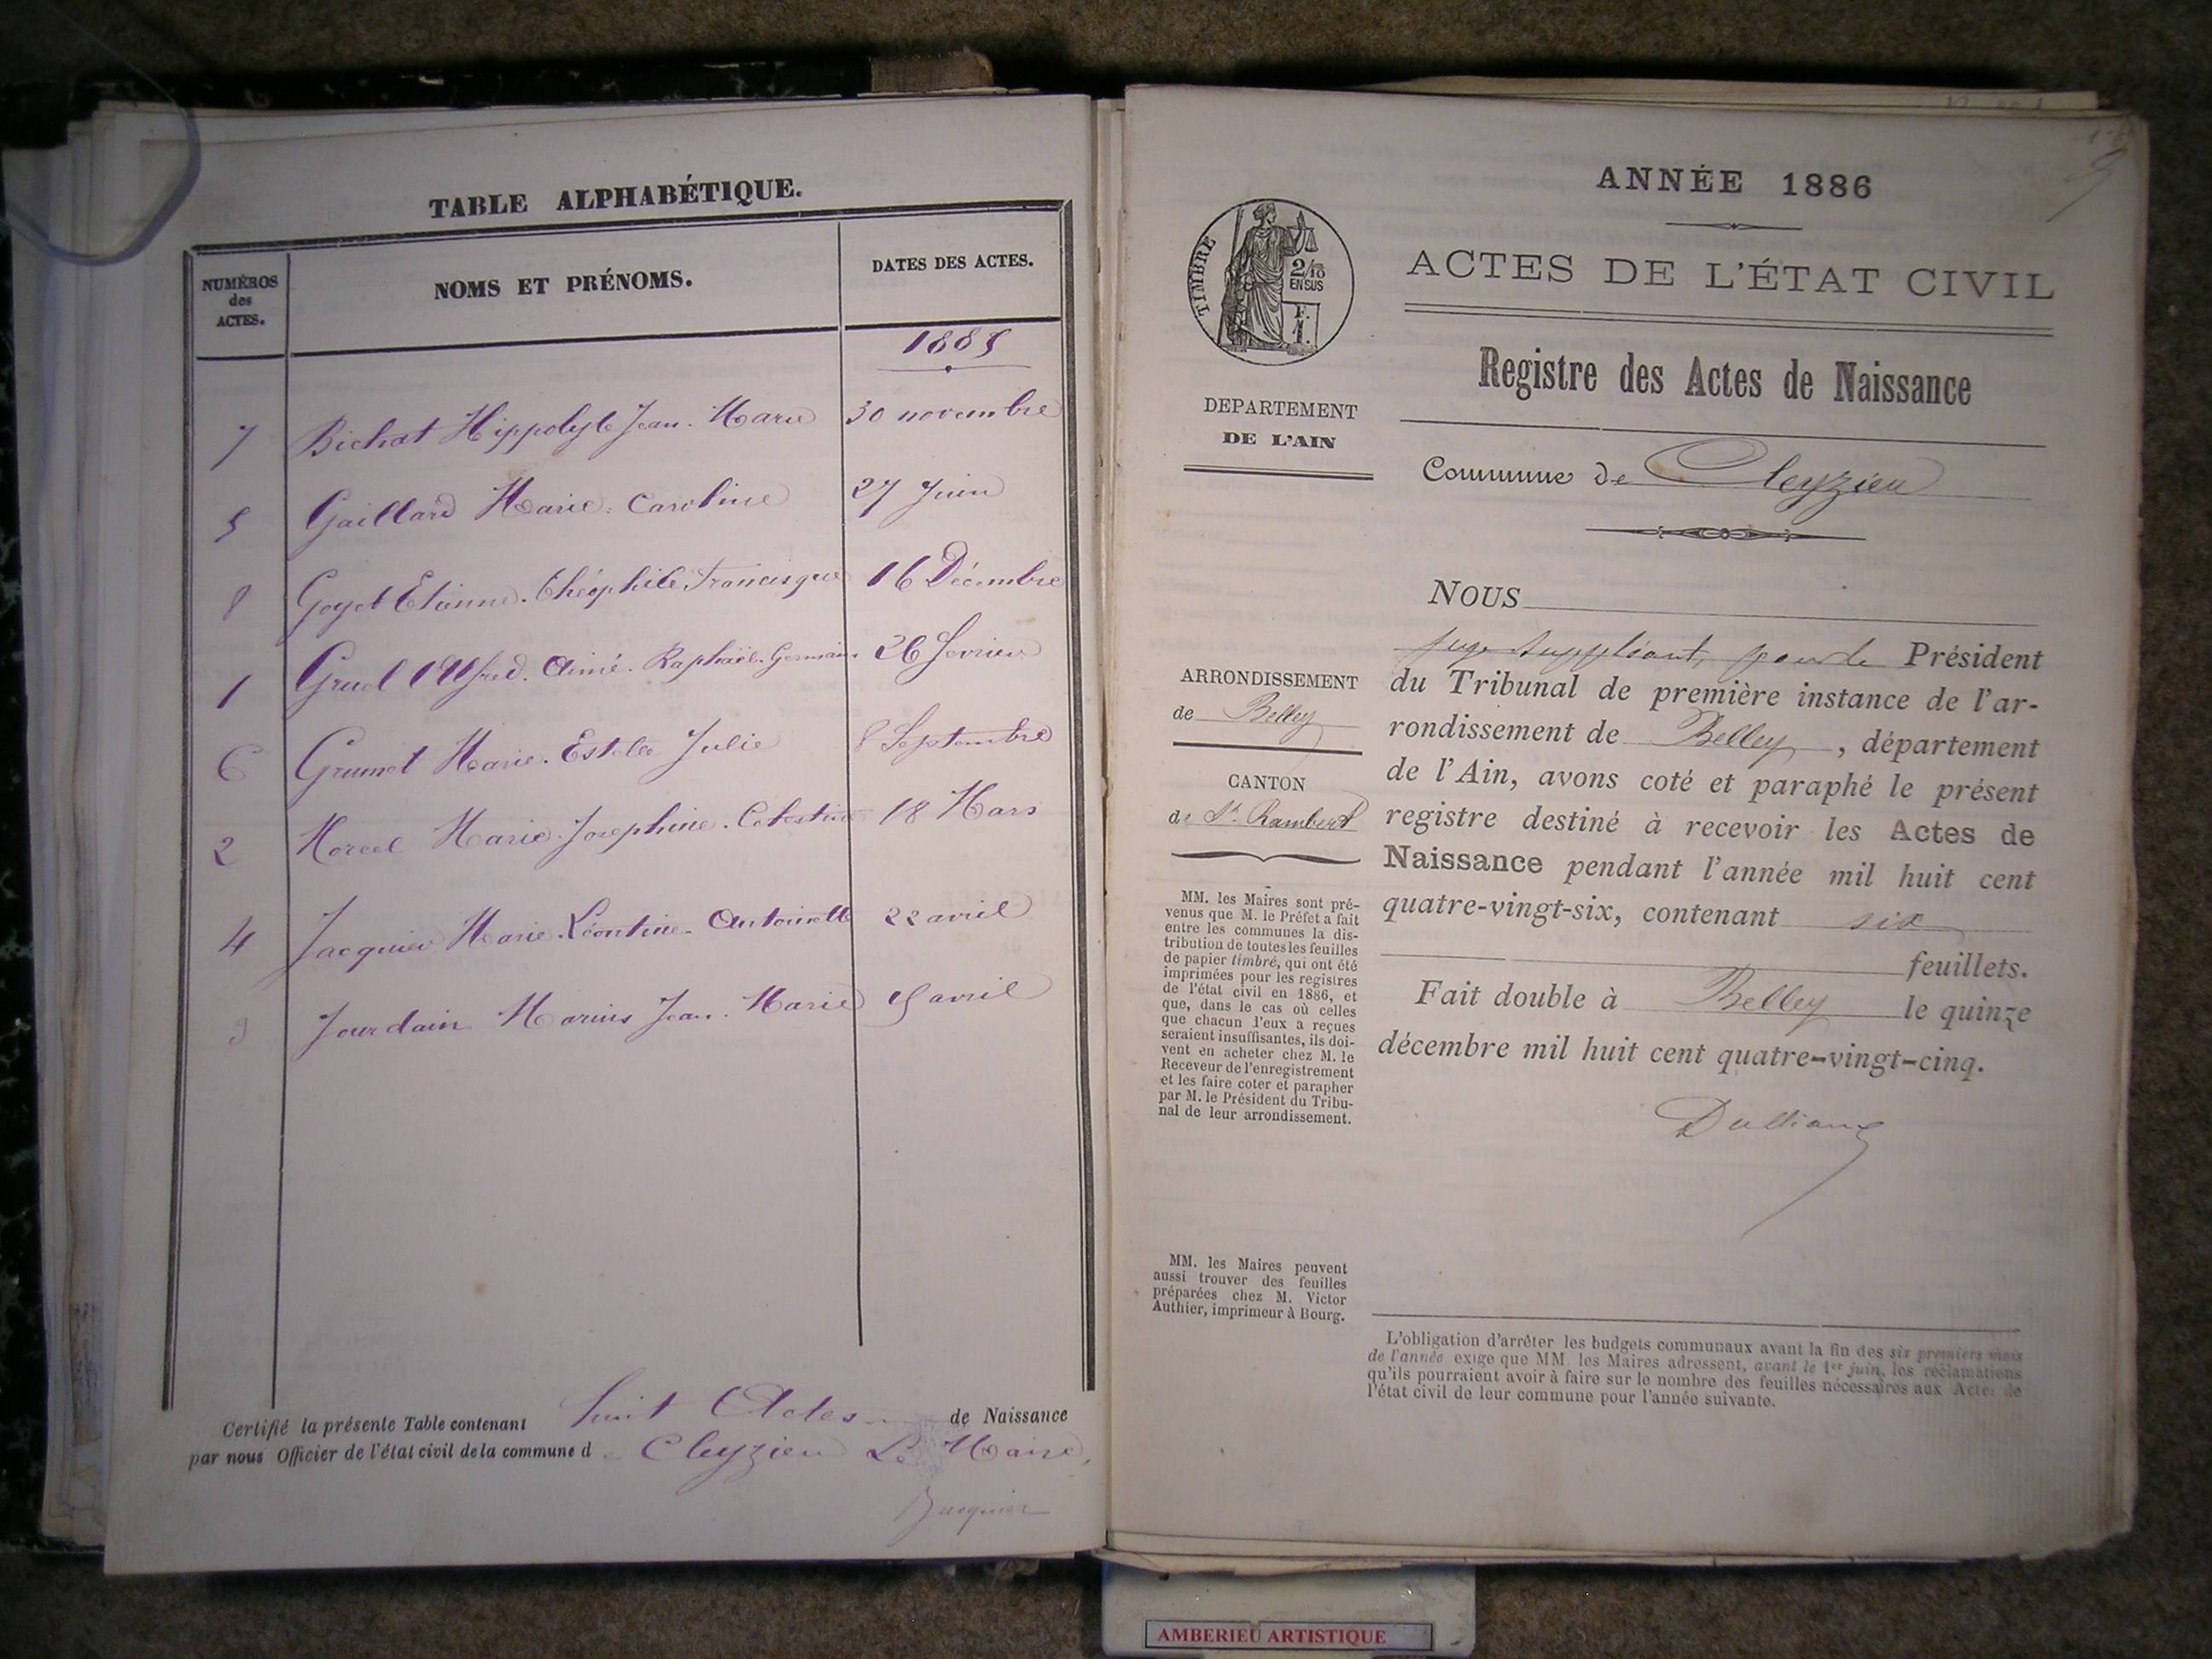 TABLE ALPHABÉTIQUE.
NUMÉROS des ACTES.
NOMS ET PRÉNOMS.
DATES DES ACTES.
1885
7 Bichat Hippolyte Jean. Marie 30 novembre
5 Gaillard Marie. Caroline 27 Juin
8 Goyet Etienne. Théophile. Francisque 16 Décembre
1 Gruel Alfred. Aimé. Raphaël. Germain 26 Février
6 Grumet Marie. Estelle Julie 8 Septembre
2 Morcel Marie. Josephine. Celestine 18 Mars
4 Jacquier Marie. Léontine. Antoinette 22 avril
3 Jourdain Marius Jean. Marie avril
Certifié la présente Table contenant huit Actes de Naissance
par nous Officier de l'état civil de la commune d Cleyzieu Le Maire,
Jacquier
ANNÉE 1886
ACTES DE L'ÉTAT CIVIL
TIMBRE
2/10
EN SUS
F.
1.
Registre des Actes de Naissance
DEPARTEMENT
DE L'AIN
Commune de Cleyzieu
NOUS
juge suppléant, pour le Président
du Tribunal de première instance de l'ar-
rondissement de Belley, département
de l'Ain, avons coté et paraphé le présent
registre destiné à recevoir les Actes de
Naissance pendant l'année mil huit cent
quatre-vingt-six, contenant six
feuillets.
Fait double à Belley le quinze
décembre mil huit cent quatre-vingt-cinq.
ARRONDISSEMENT
de Belley
CANTON
de St. Rambert
MM. les Maires sont pré-
venus que M. le Préfet a fait
entre les communes la dis-
tribution de toutes les feuilles
de papier timbré, qui ont été
imprimées pour les registres
de l'état civil en 1886, et
que, dans le cas où celles
que chacun d'eux a reçues
seraient insuffisantes, ils doi-
vent en acheter chez M. le
Receveur de l'enregistrement
et les faire coter et parapher
par M. le Président du Tribu-
nal de leur arrondissement.
MM. les Maires peuvent
aussi trouver des feuilles
préparées chez M. Victor
Authier, imprimeur à Bourg.
L'obligation d'arrêter les budgets communaux avant la fin des six premiers mois
de l'année exige que MM. les Maires adressent, avant le 1er juin, les réclamations
qu'ils pourraient avoir à faire sur le nombre des feuilles nécessaires aux Actes de
l'état civil de leur commune pour l'année suivante.
AMBERIEU ARTISTIQUE